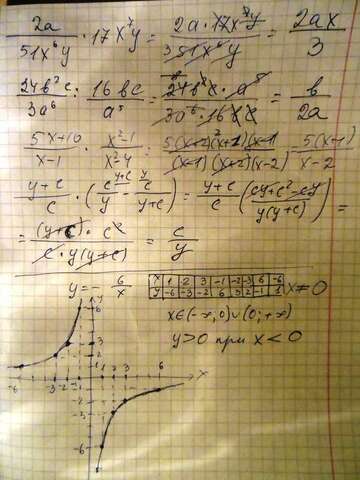 2a/51x⁶y · 17x⁷y = 2a·17x⁷y/3 51x⁶y = 2ax/3
24b²c/3a⁶ : 16bc/a⁵ = 24b²c·a⁵/3a⁶·16bc = b/2a
5x+10/x-1 · x²-1/x²-4 = 5(x+2)(x+1)(x-1)/(x-1)(x+2)(x-2) = 5(x+1)/x-2
y+c/c · (c/y - c/y+c) = y+c/c (cy+c²-cy/y(y+c)) =
= (y+c)·c²/c·y(y+c) = c/y
y = - 6/x
x 1 2 3 -1 -2 -3 6 -6
y -6 -3 -2 6 3 2 -1 1
x≠0
x∈(-∞,0)∪(0;+∞)
y>0 при x<0
y
6
3
2
1
-6 -3 -2 -1 1 2 3 6 x
-1
-2
-3
-6